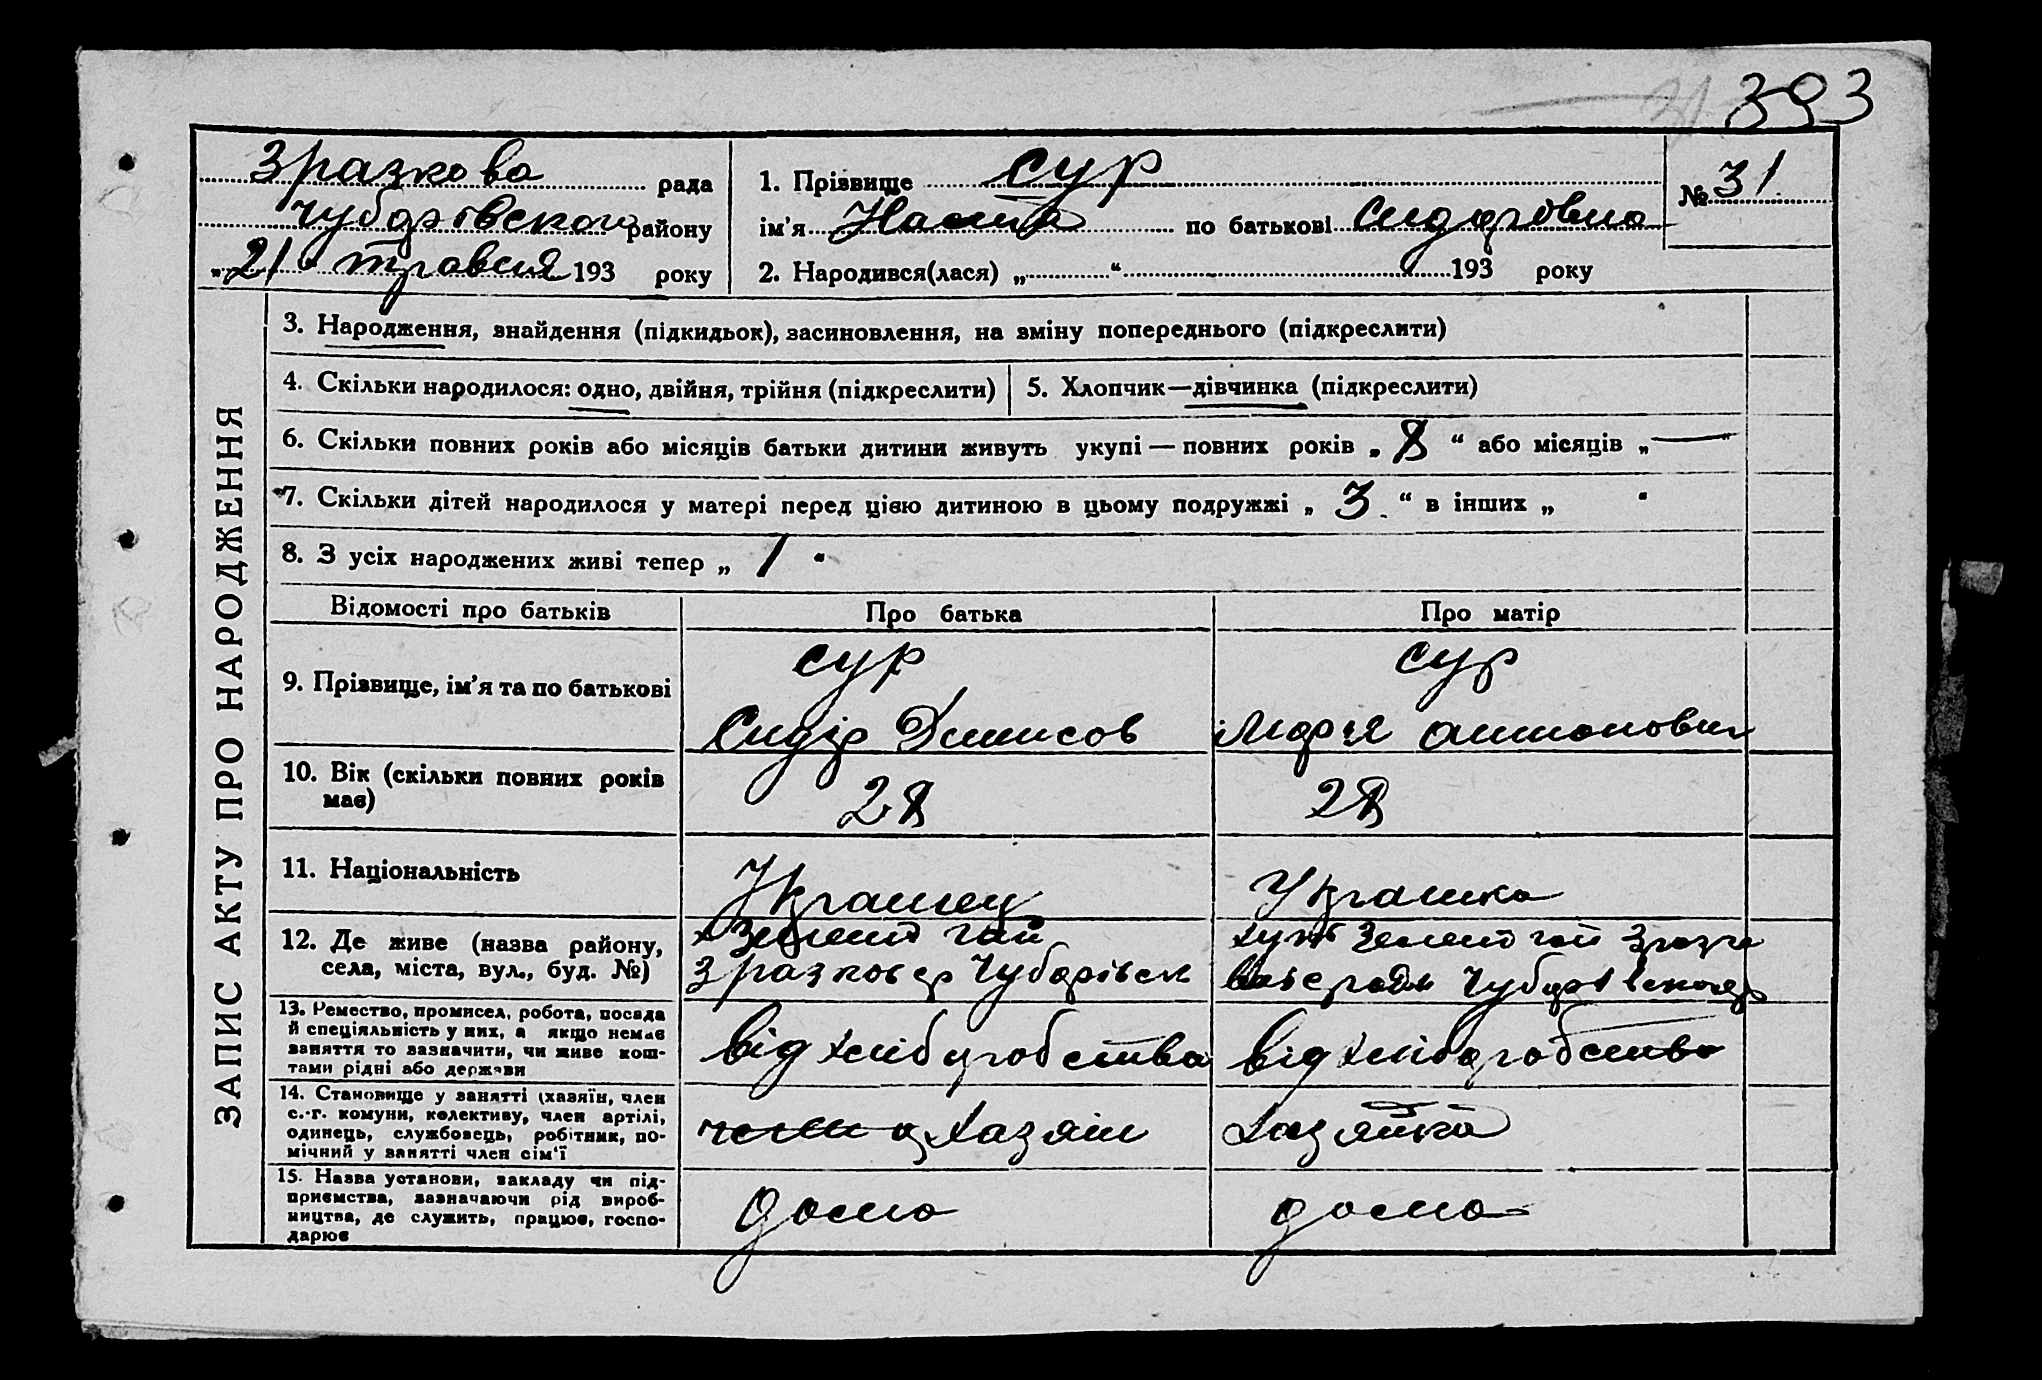 31 393
Зразкова рада
Чубарівского району
„21“ травня 193 року
1. Прізвище Сур
ім'я Настя по батькові Сидорівна
№ 31
2. Народився(лася) „ “ 193 року
ЗАПИС АКТУ ПРО НАРОДЖЕННЯ
3. Народження, знайдення (підкидьок), засиновлення, на зміну попереднього (підкреслити)
4. Скільки народилося: одно, двійня, трійня (підкреслити)
5. Хлопчик—дівчинка (підкреслити)
6. Скільки повних років або місяців батьки дитини живуть укупі — повних років „ 8 “ або місяців „ — “
7. Скільки дітей народилося у матері перед цією дитиною в цьому подружжі „ 3 “ в інших „ “
8. З усіх народжених живі тепер „ 1 “
Відомості про батьків
Про батька
Про матір
9. Прізвище, ім'я та по батькові
Сур
Сидір Денисов
Сур
Марія Антоновна
10. Вік (скільки повних років
має)
28
28
11. Національність
Українец
Українка
12. Де живе (назва району,
села, міста, вул., буд. №)
х Зелений гай
Зразков ср Чубарівськ
Хут Зелений гай Зразко
ради Чубарівского р
13. Ремество, промисел, робота, посада
й спеціяльність у них, а якщо немає
заняття то зазначити, чи живе кош-
тами рідні або держави
від хлібаробства
від хлібаробства
14. Становище у занятті (хазяїн, член
с.-г. комуни, колективу, член артілі,
одинець, службовець, робітник, по-
мічний у занятті член сім'ї
хазяїн
хазяйка
15. Назва установи, закладу чи під-
приємства, зазначаючи рід вироб-
ництва, де служить, працює, госпо-
дарює
дома
дома